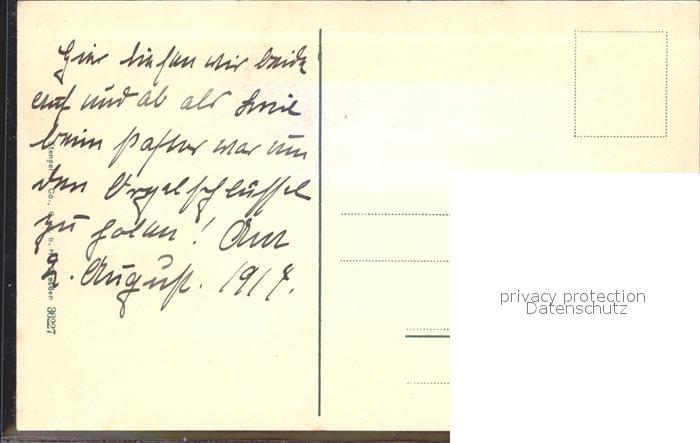 Hier liefen wir beide
auf und ab als Emil
beim Pastor war um
den Orgelschlüssel
zu holen! Am
2. August. 1917.
Stengel & Co., G. m. b. H., Dresden 36227
privacy protection
Datenschutz